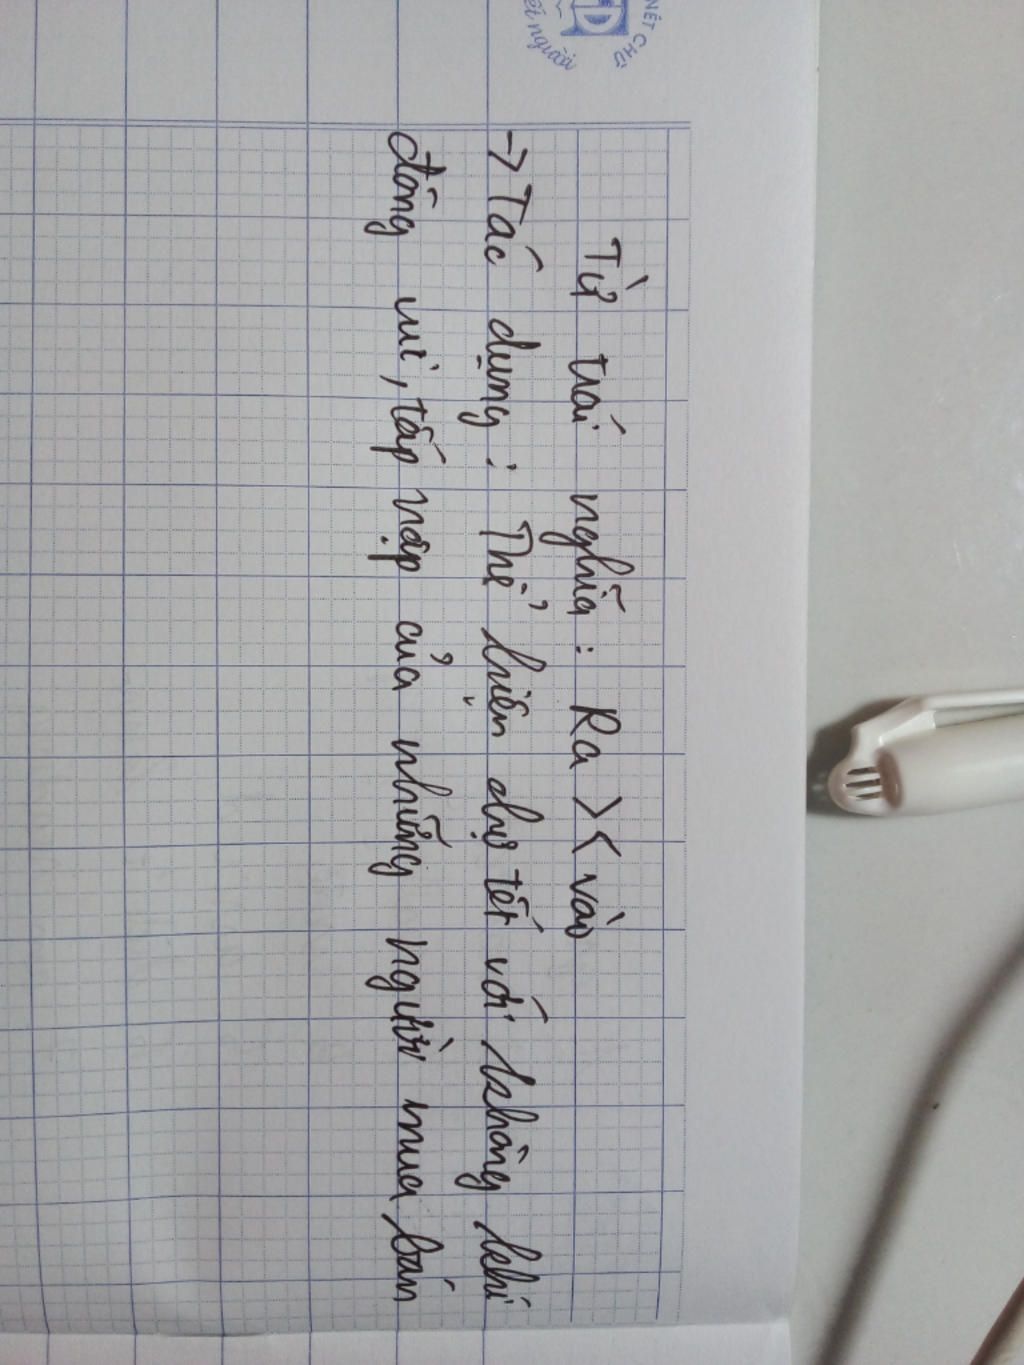 NÉT CHỮ
nết người
Từ trái nghĩa : Ra >< vào
-> Tác dụng : Thể hiện chợ tết với không khí
đông vui, tấp nập của những người mua bán